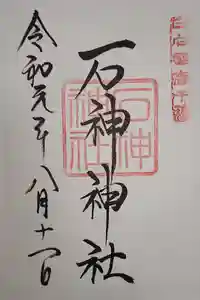 石神神社
石神
神社
令和元年八月十一日